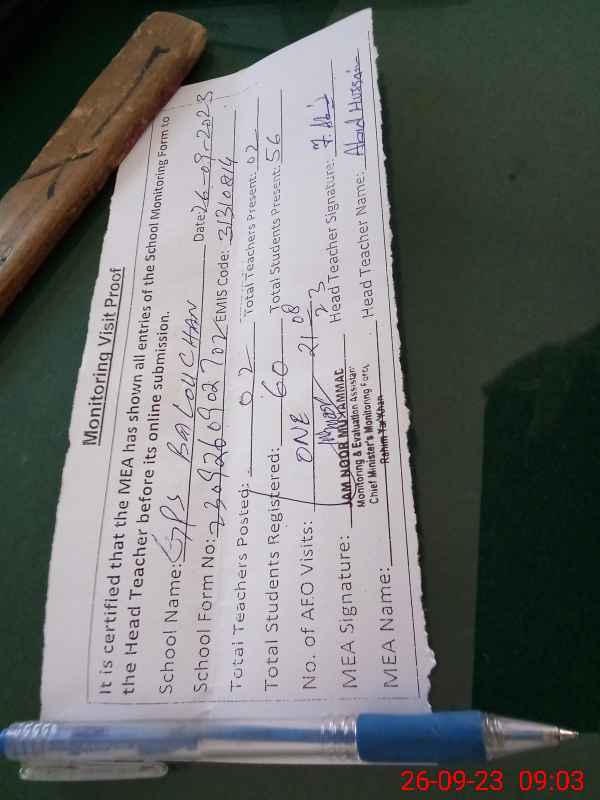 Monitoring Visit Proof
It is certified that the MEA has shown all entries of the School Monitoring Form to
the Head Teacher before its online submission.
School Name: GPS BALOUCHAN Date: 26-09-2023
School Form No: 2309260902702 EMIS Code: 31310814
Total Teachers Posted: 02 Total Teachers Present: 02
Total Students Registered: 60 Total Students Present: 56
No. of AEO Visits: ONE 21 08 23
MEA Signature: Head Teacher Signature:
JAM NOOR MUHAMMAD
Monitoring & Evaluation Assistant
Chief Minister's Monitoring Force
Rahim Yar Khan
MEA Name: Head Teacher Name: Abid Hussain
26-09-23 09:03